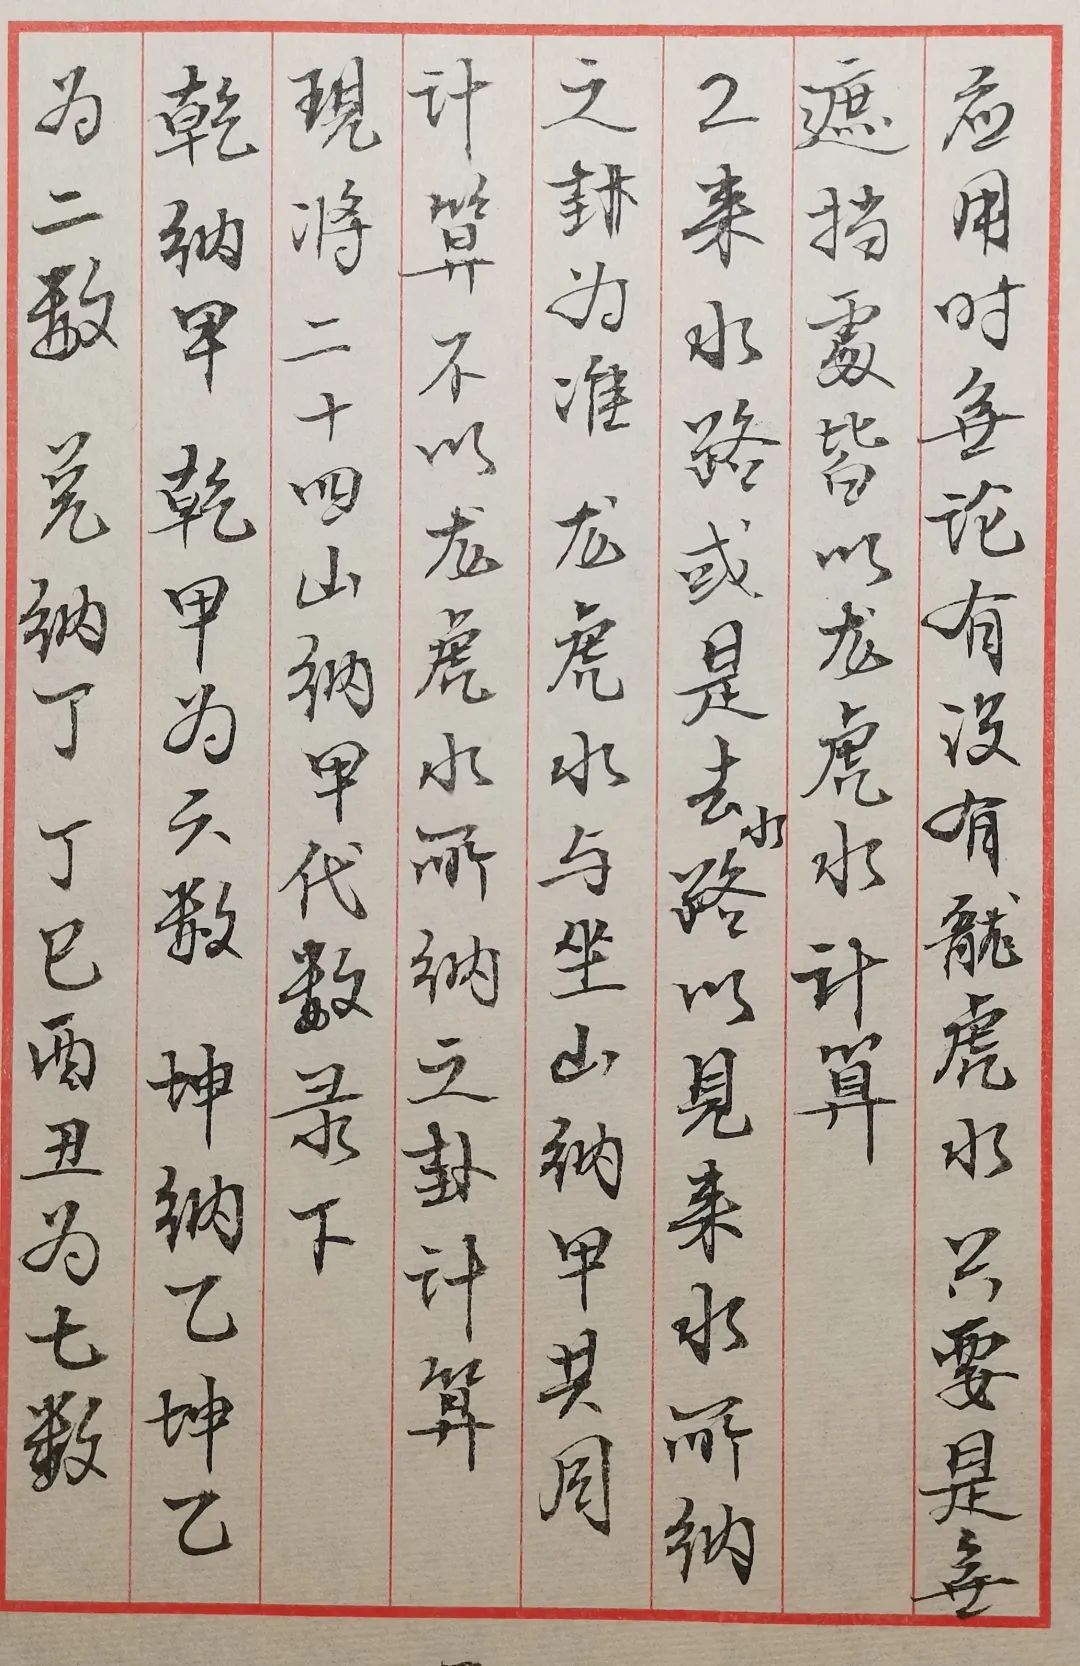 应用时無论有没有龍虎水只要是無
遮挡處皆以龙虎水计算
2来水路或是去水路以見来水所纳
之卦为准 龙虎水与坐山纳甲共同
计算不以龙虎水所纳之卦计算
現将二十四山纳甲代数录下
乾纳甲 乾甲为六数 坤纳乙坤乙
为二数 兑纳丁 丁巳酉丑为七数